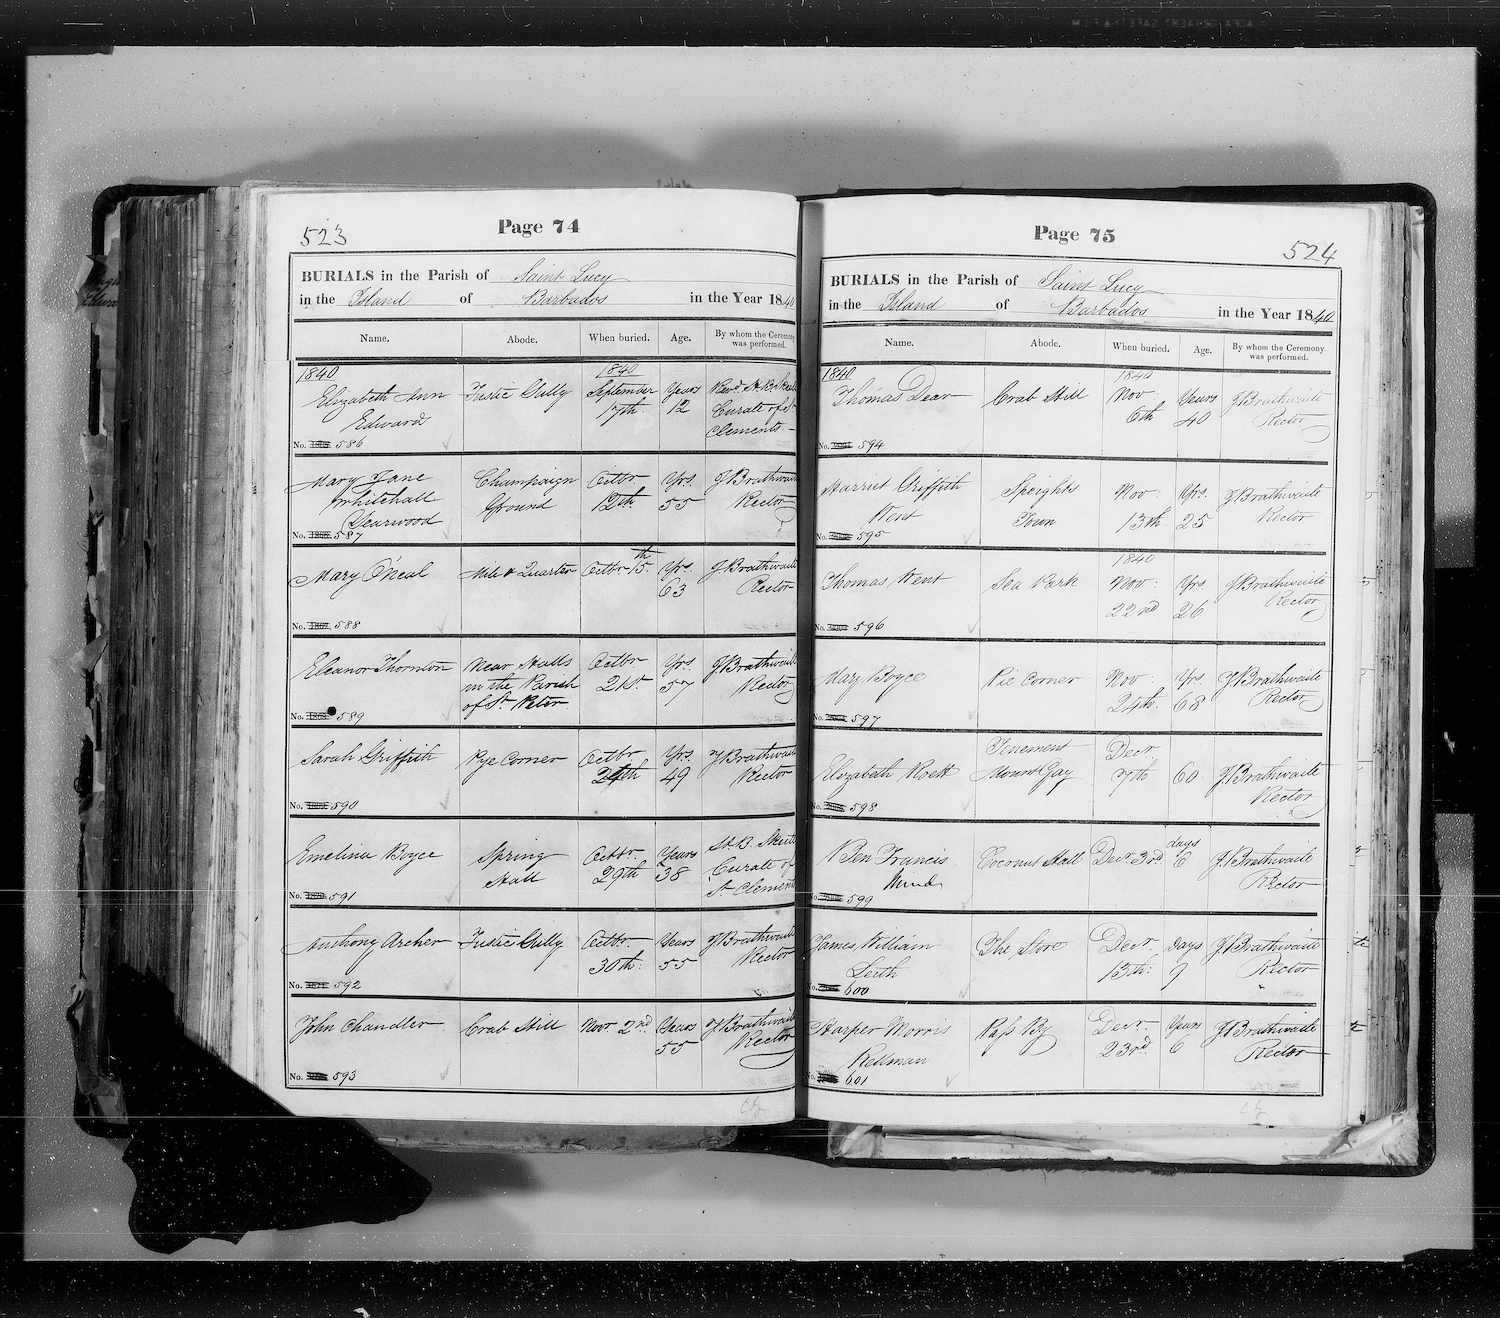 523
Page 74
BURIALS in the Parish of Saint Lucy
in the Island of Barbados in the Year 1840
Name. Abode. When buried. Age. By whom the Ceremony was performed.
1840 1840
Elizabeth Ann Fustic Gully September Years Revd.
Edward 17th 12 Curate of St
Clements
No. 586
Mary Jane Champaign Octbr Yrs. J Brathwaite
Whitehall Ground 12th 55 Rector
Yearwood
No. 587
Mary O'Neal Mile & Quarter Octbr 15th Yrs. J Brathwaite
63 Rector
No. 588
Eleanor Thornton Near Halls Octbr Yrs. J Brathwaite
in the Parish 21st 57 Rector
of St. Peter
No. 589
Sarah Griffith Pye Corner Octbr Yrs. J Brathwaite
24th 49 Rector
No. 590
Emelina Boyce Spring Octbr. Years St. B.
Hall 29th 38 Curate of
St Clement
No. 591
Anthony Archer Fustic Gully Octbr. Years J Brathwaite
30th. 55 Rector
No. 592
John Chandler Crab Hill Novr 2nd Years J Brathwaite
55 Rector
No. 593
Page 75
524
BURIALS in the Parish of Saint Lucy
in the Island of Barbados in the Year 1840
Name. Abode. When buried. Age. By whom the Ceremony was performed.
1840 1840
Thomas Dear Crab Hill Nov Years J Brathwaite
6th 40 Rector
No. 594
Harriet Griffith Speights Nov. Yrs. J Brathwaite
Kent Town 13th 25 Rector
No. 595
1840
Thomas Kent Sea Park Nov. Yrs J Brathwaite
22nd 26 Rector
No. 596
Mary Boyce Pie Corner Nov. Yrs J Brathwaite
24th. 68 Rector
No. 597
Tenement Decr.
Elizabeth Roett Mount Gay 7th 60 J Brathwaite
Rector
No. 598
Ben Francis Coconut Hall Decr. 3rd days 6 J Brathwaite
Rector
No. 599
James William The Store Decr. Days J Brathwaite
Leith 13th. 9 Rector
No. 600
Harper Morris Pass By Decr. Years J Brathwaite
Kellman 23rd 6 Rector
No. 601